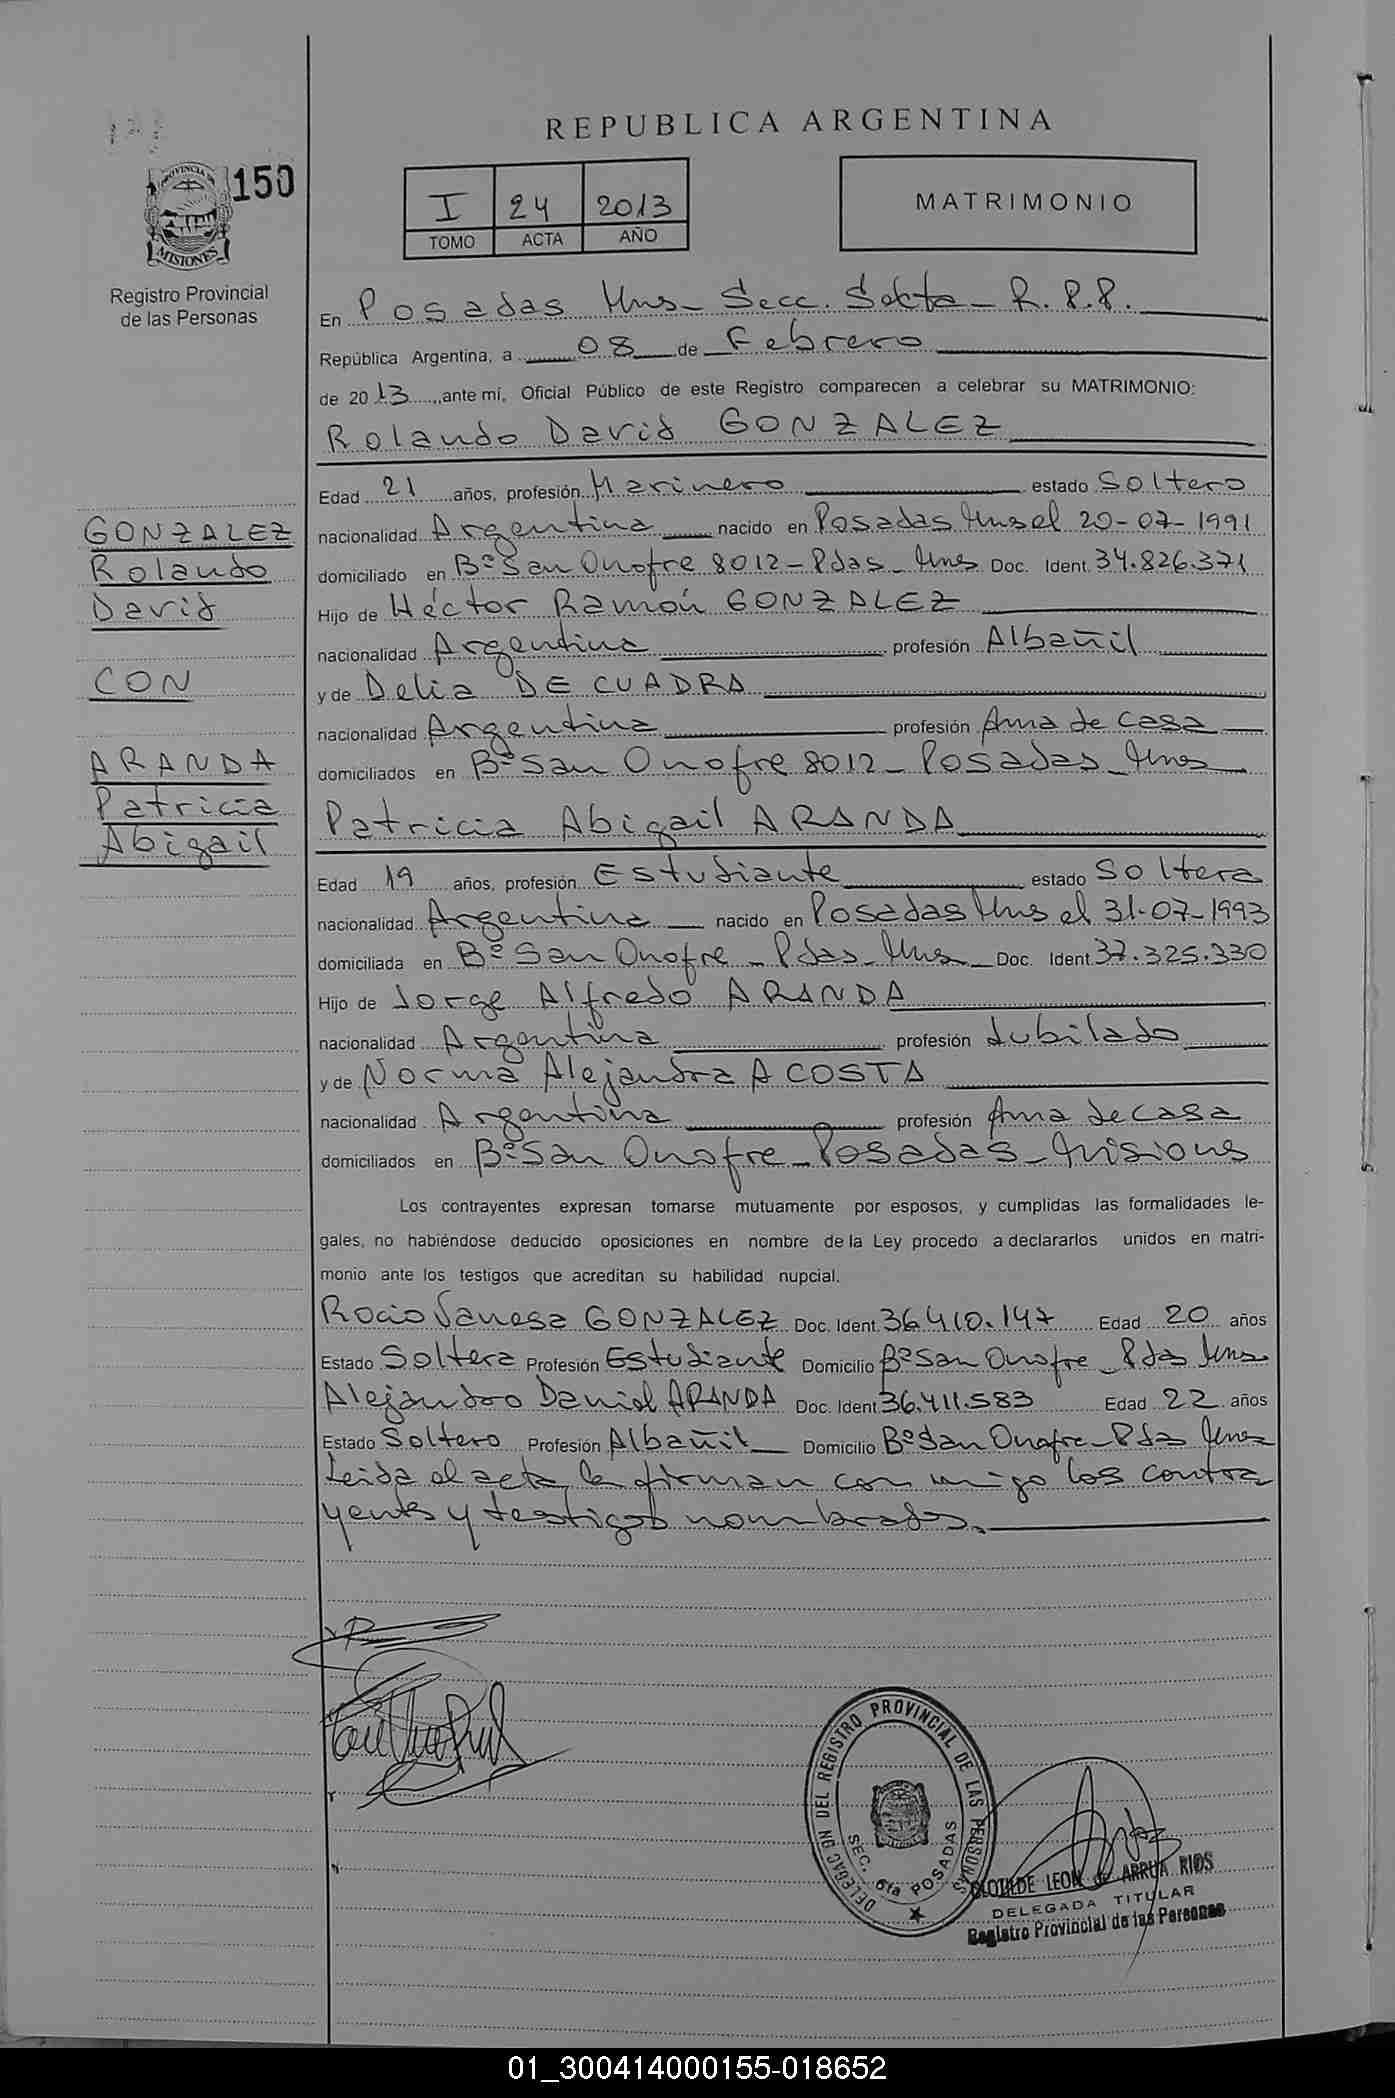 REPUBLICA ARGENTINA
150
PROVINCIA DE
MISIONES
Registro Provincial
de las Personas
I 24 2013
TOMO ACTA AÑO
MATRIMONIO
En Posadas Mns- Secc. Sexta - R.P.P.
República Argentina, a 08 de Febrero
de 2013, ante mí, Oficial Público de este Registro comparecen a celebrar su MATRIMONIO:
Rolando David GONZALEZ
Edad 21 años, profesión Marinero estado Soltero
GONZALEZ
nacionalidad Argentina nacido en Posadas Mns el 20-07-1991
Rolando
domiciliado en Bº San Onofre 8012 - Pdas - Mns Doc. Ident. 34.826.371
David
Hijo de Héctor Ramón GONZALEZ
nacionalidad Argentina profesión Albañil
CON
y de Delia DE CUADRA
nacionalidad Argentina profesión Ama de casa
ARANDA
domiciliados en Bº San Onofre 8012 - Posadas - Mns
Patricia
Abigail
Patricia Abigail ARANDA
Edad 19 años, profesión Estudiante estado Soltera
nacionalidad Argentina nacido en Posadas Mns el 31-07-1993
domiciliada en Bº San Onofre - Pdas - Mns - Doc. Ident. 37.325.330
Hijo de Jorge Alfredo ARANDA
nacionalidad Argentina profesión Jubilado
y de Norma Alejandra ACOSTA
nacionalidad Argentina profesión Ama de casa
domiciliados en Bº San Onofre - Posadas - Misiones
Los contrayentes expresan tomarse mutuamente por esposos, y cumplidas las formalidades le-
gales, no habiéndose deducido oposiciones en nombre de la Ley procedo a declararlos unidos en matri-
monio ante los testigos que acreditan su habilidad nupcial.
Rocio Vanesa GONZALEZ Doc. Ident. 36.410.147 Edad 20 años
Estado Soltera Profesión Estudiante Domicilio Bº San Onofre - Pdas Mns
Alejandro Daniel ARANDA Doc. Ident. 36.411.583 Edad 22 años
Estado Soltero Profesión Albañil - Domicilio Bº San Onofre - Pdas Mns
Leida el acta la firman conmigo los contra
yentes y testigos nombrados.
DELEGACION DEL REGISTRO PROVINCIAL DE LAS PERSONAS
SEC. 6ta POSADAS
CLOTILDE LEON de ARRUA RIOS
DELEGADA TITULAR
Registro Provincial de las Personas
01_300414000155-018652